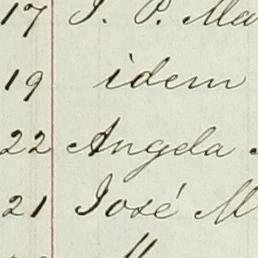 17 J. P. Ma
19 idem
22 Angela
21 José M